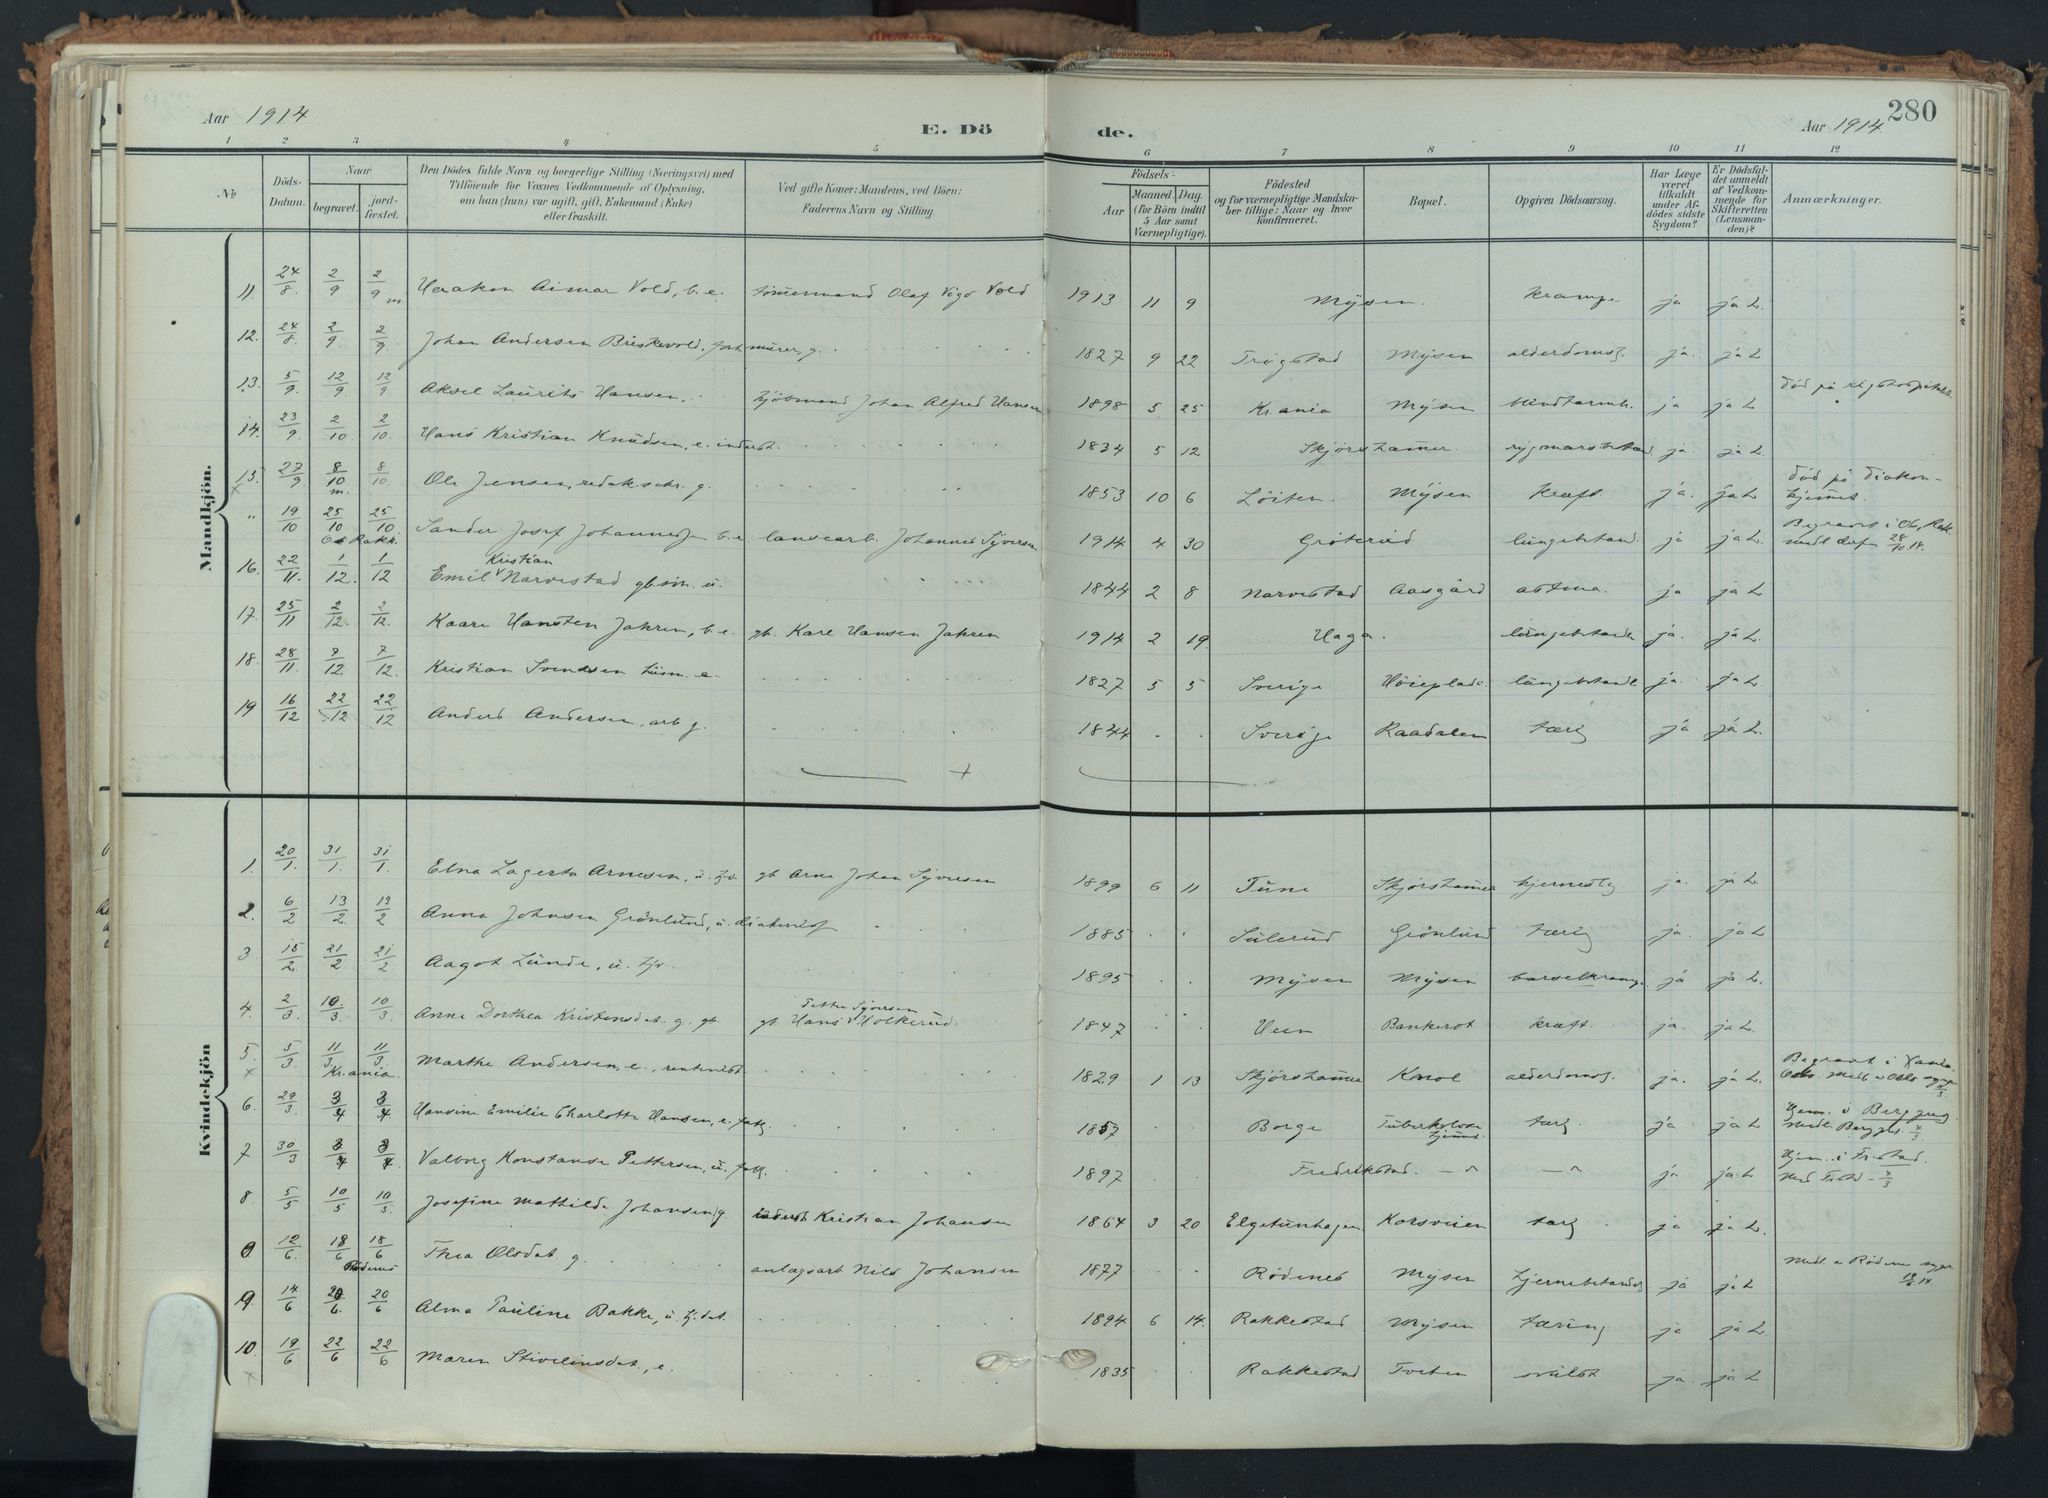 Aar 1914
E. Dö de.
Aar 1914.
280
1 2 3 4 5 6 7 8 9 10 11 12
No.
Döds-Datum.
Naar
begravet. jord-fæstet.
Den Dödes fulde Navn og borgerlige Stilling (Næringsvei) med
Tilföiende for Voxnes Vedkommende af Oplysning,
om han (hun) var ugift, gift, Enkemand (Enke)
eller fraskilt.
Ved gifte Koner: Mandens, ved Börn:
Faderens Navn og Stilling.
Födsels-
Aar
Maaned. Dag.
(for Börn indtil
5 Aar samt
Værnepligtige).
Födested
og for værnepligtige Mandska-
ber tillige: Naar og hvor
konfirmeret.
Bopæl.
Opgiven Dödsaarsag.
Har Læge
været
tilkaldt
under Af-
dödes sidste
Sygdom?
Er Dödsfal-
det anmeldt
af Vedkom-
mende for
Skifteretten
(Lensman-
den)?
Anmærkninger.
Mandkjön.
11. 24/8 2/9 2/9 m Haakon Aimar Vold, b. e. tömmermand Olaf Vigo Vold 1913 11 9 Mysen. Krampe ja ja L.
12. 24/8 2/9 2/9 Johan Andersen Briskevold, murer, g. 1827 9 22 Trøgstad Mysen alderdoms. ja. ja L
13. 5/9 12/9 12/9 Aksel Laurits Hansen, Johan Alfred Hansen 1898 5 25 Kr.ania Mysen ja ja L Död på rigshospitalet
14. 23/9 2/10 2/10 Hans Kristian Knudsen, e. inderst. 1834 5 12 Skjørshamer ja. ja L
15. 27/9 8/10 m. 8/10. Ole Jensen, redaksekr. g. 1853 10 6 Löiten. Mysen Kræft ja. ja L Död på diakon-
hjemmet.
" 19/10 25/10 25/10 Sander Josef Johannessen b. e. Johannes Syversen 1914 4 30 Grøterud lungebetænd. ja ja L. Begravet i Ob, Rak.
28/10. 14.
16. 22/11. 1/12. 1/12 Emil Kristian Narvestad gb. søn. u. 1844 2 8 Narvestad Aasgård astma. ja ja L
17. 25/11 2/12. 2/12. Kaare Hansten Jahren, b. e. gb. Karl Hansen Jahren 1914 2 19. Haga. lungebetænd ja. ja L.
18. 28/11. 7/12. 7/12. Kristian Svendsen husm. e. 1827 5 5 Sverige lungebetænd ja. ja L
19 16/12 22/12 22/12 Anders Andersen, arb g. 1844 Sverige Raadalen tærg ja ja L.
Kvindekjön
1. 20/1. 31/1. 31/1. Elna Lagerta Arnesen, u. gb Arne Johan Syversen 1899 6 11 Tune Skjørshamer ja. ja L
2. 6/2 13/2 13/2 Anna Johnsen Grönlund, u. diakonisse 1885 Sulerud Grönlund tærg ja. ja L
3 15/2. 21/2 21/2 Aagot Lunde, u. tj. 1895 Mysen Mysen barselkramp. ja ja L
4. 2/3. 10/3. 10/3. Anne Dorthea Kristensdat. g. gb. Hans Petter Syversen Holkerud. 1847 Heen Bankerot Kræft. ja. ja L.
5. 5/3. 11/3 11/3. Kr.ania. Marthe Andersen, e., rentenist 1829 1 13 Skjørshamer Knol alderdoms. ja. ja L.
6 29/3. 3/4 3/4 Hansine Emilie Charlotte Hansen, e. fatg. 1857 Borge Tuberkulose-
hjemmet. tærg. ja ja L. Hjem. i Berg
7 30/3 3/4 3/4 Valborg Konstanse Pettersen, u. fatg. 1897 Fredrikstad. — " — " ja ja L Hjem. i Fr.stad.
8 5/5 10/5 10/5. Josefine Mathilde Johansen g. inderst Kristian Johansen 1864 3 20 Elgetunhagen Korsveien tærg ja ja L.
12/6. 18/6 Rödenes 18/6 Thea Olsdat. g. anlægsarb Nils Johansen 1877 Rödenes Mysen hjernebetændelse ja ja L Medt. i Rödenes
9. 14/6 20/6. 20/6 Alma Pauline Bakke, u. 1894 6 14. Rakkestad Mysen tæring ja ja L.
10. 19/6 22/6 22/6 Maren Stivelinsdat., e. 1835 Rakkestad Tveten svulst ja. ja L